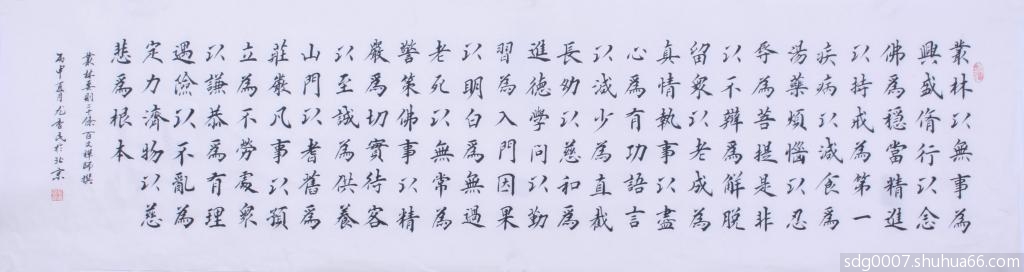 叢林以無事為
興盛脩行以念
佛為穩當精進
以持戒為第一
疾病以減食為
湯藥煩惱以忍
辱為菩提是非
以不辯為解脫
留眾以老成為
真情執事以盡
心為有功語言
以減少為直截
長幼以慈和為
進德學問以勤
習為入門因果
以明白為無過
老死以無常為
警策佛事以精
嚴為切實待客
以至誠為供養
山門以耆舊為
莊嚴凡事以預
立為不勞處眾
以謙恭為有理
遇險以不亂為
定力濟物以慈
悲為根本
叢林要則二十條百丈禪師撰
丙申夏月於北京
sdg0007.shuhua66.com